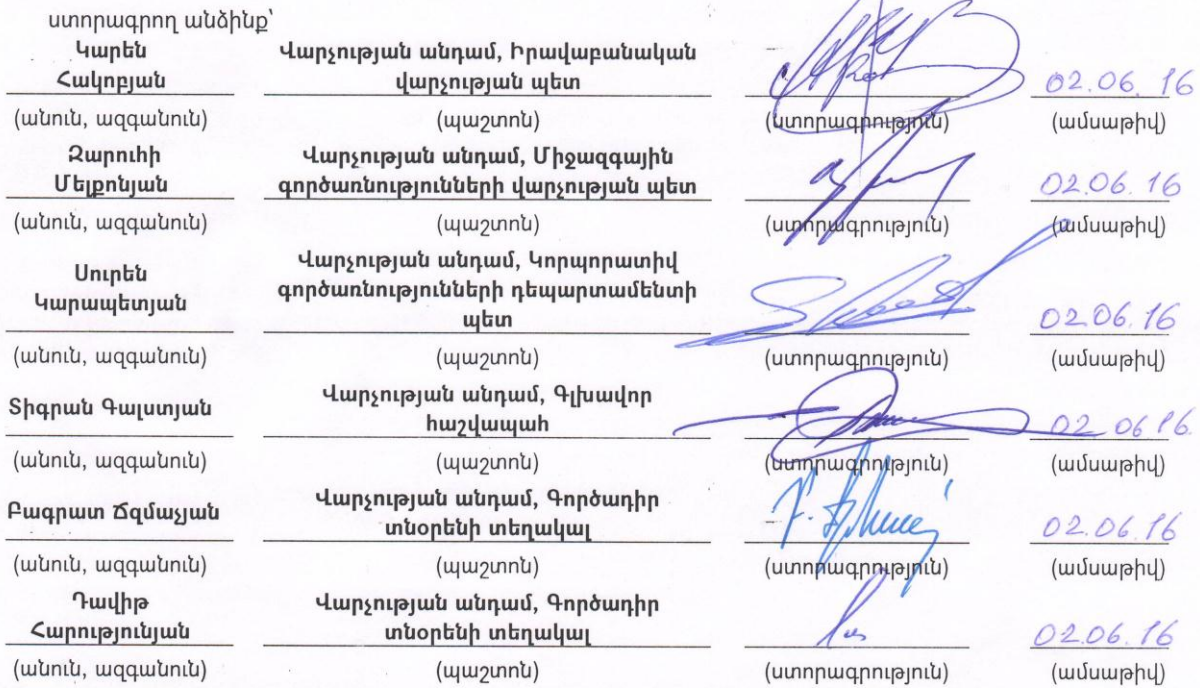 ստորագրող անձինք՝
Կարեն Վարչության անդամ, Իրավաբանական
Հակոբյան վարչության պետ 02.06.16
(անուն, ազգանուն) (պաշտոն) (ստորագրություն) (ամսաթիվ)
Զարուհի Վարչության անդամ, Միջազգային
Մելքոնյան գործառնությունների վարչության պետ 02.06.16
(անուն, ազգանուն) (պաշտոն) (ստորագրություն) (ամսաթիվ)
Սուրեն Վարչության անդամ, Կորպորատիվ
Կարապետյան գործառնությունների դեպարտամենտի
պետ 02.06.16
(անուն, ազգանուն) (պաշտոն) (ստորագրություն) (ամսաթիվ)
Տիգրան Գալստյան Վարչության անդամ, Գլխավոր
հաշվապահ 02 06 16.
(անուն, ազգանուն) (պաշտոն) (ստորագրություն) (ամսաթիվ)
Բագրատ Ճզմաչյան Վարչության անդամ, Գործադիր
տնօրենի տեղակալ 02.06.16
(անուն, ազգանուն) (պաշտոն) (ստորագրություն) (ամսաթիվ)
Դավիթ Վարչության անդամ, Գործադիր
Հարությունյան տնօրենի տեղակալ 02.06.16
(անուն, ազգանուն) (պաշտոն) (ստորագրություն) (ամսաթիվ)